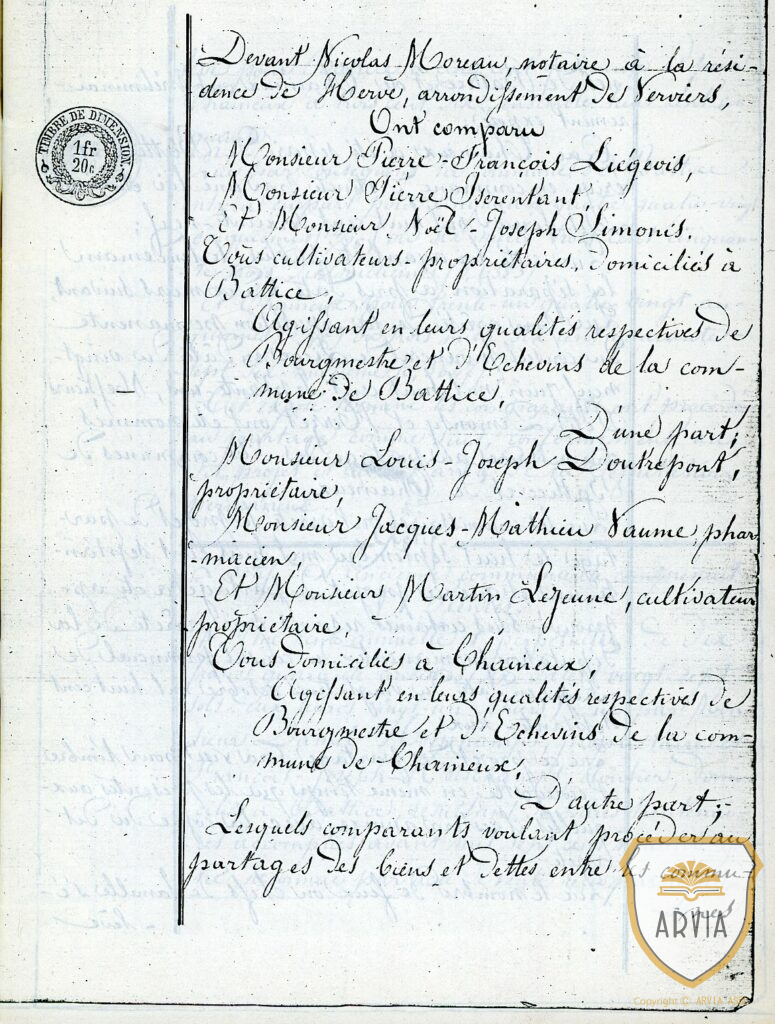 Devant Nicolas Moreau, notaire à la rési-
dence de Herve, arrondissement de Verviers,
Ont comparu
Monsieur Pierre-François Liégeois,
Monsieur Pierre Iserentant,
Et Monsieur Noël-Joseph Simonis,
Tous cultivateurs-propriétaires, domiciliés à
Battice,
Agissant en leurs qualités respectives de
Bourgmestre et d'Echevins de la com-
mune de Battice,
D'une part;
Monsieur Louis-Joseph Doutrepont,
propriétaire,
Monsieur Jacques-Mathieu Vaume, phar-
-macien,
Et Monsieur Martin Lejeune, cultivateur
propriétaire,
Tous domiciliés à Chaineux,
Agissant en leurs qualités respectives de
Bourgmestre et d'Echevins de la com-
mune de Chaineux,
D'autre part;
Lesquels comparants voulant procéder au
partages des biens et dettes entre les commu-
-nes
TIMBRE DE DIMENSION.
1 fr
20 c
ARVIA
Copyright © ARVIA